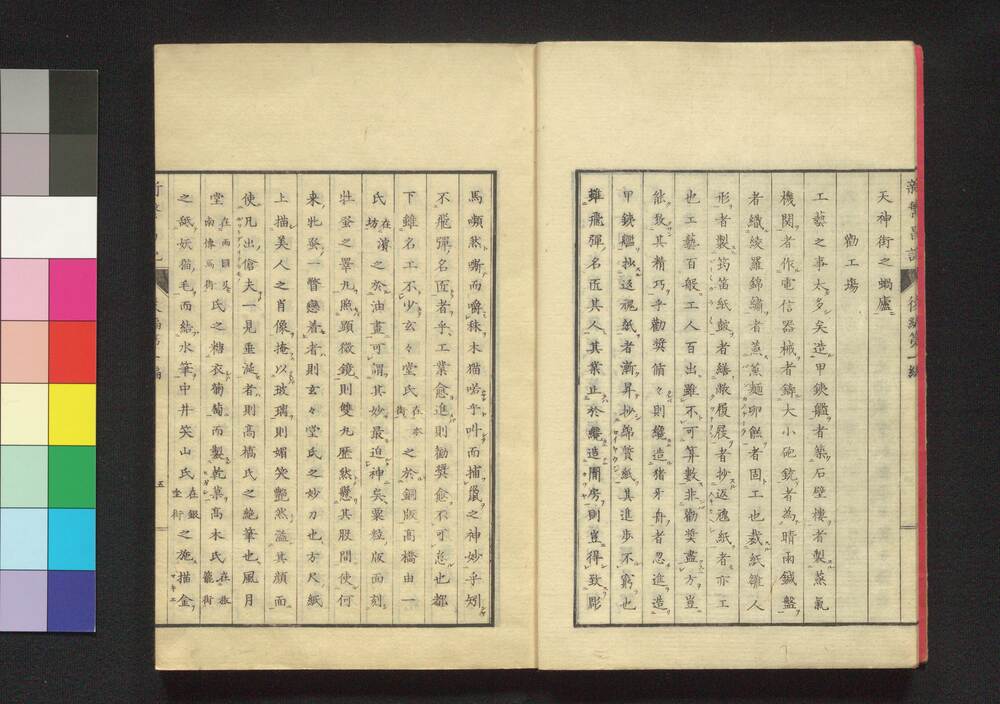 天神街之蝸廬
勸工場
工藝之事太多矣造甲鐵艦者築石壁樓者製蒸氣
機関者作電信器械者鋳大小砲銃者為晴雨鍼盤
者織綾羅錦繍者蒸蒸麺卵餻者固工也裁紙雛人
形者製笻笛紙皷者繕敝履屐者抄返魂紙者亦工
也工藝百般工人百出雖不可算數非勸奨盡方豈
能致其精巧乎勸奨脩々則纔造猪牙舟者忍進造
甲鐵艦抄返魂紙者漸昇抄綿賛紙其進歩不窮也
雖飛彈名匠其人其業止於纔造閨房則豈得致彫
馬嘶然嘶而嚼秣木猫喏乎叫而捕鼠之神妙乎矧
不飛彈名匠者乎工業愈進則勸奨愈不可怠也都
下雖名工不少玄々堂氏在本街之於銅版髙橋由一
氏在濱坊之於油畫可謂其妙最迫神矣粟粒版面刻
牡蛋之睪丸照顕微鏡則雙丸歴然懸其股間使何
来牝蛋一瞥戀着者則玄々堂氏之妙刀也方尺紙
上描美人之肖像掩以玻璃則媚笑艷然溢其顔面
使凡出傖夫一見垂涎者則髙橋氏之絶筆也風月
堂在両國南傳馬街氏之糖衣葡萄而製乾菓髙木氏
之舐妖猫毛而結水筆中井笑山氏在銀坐街之施描金